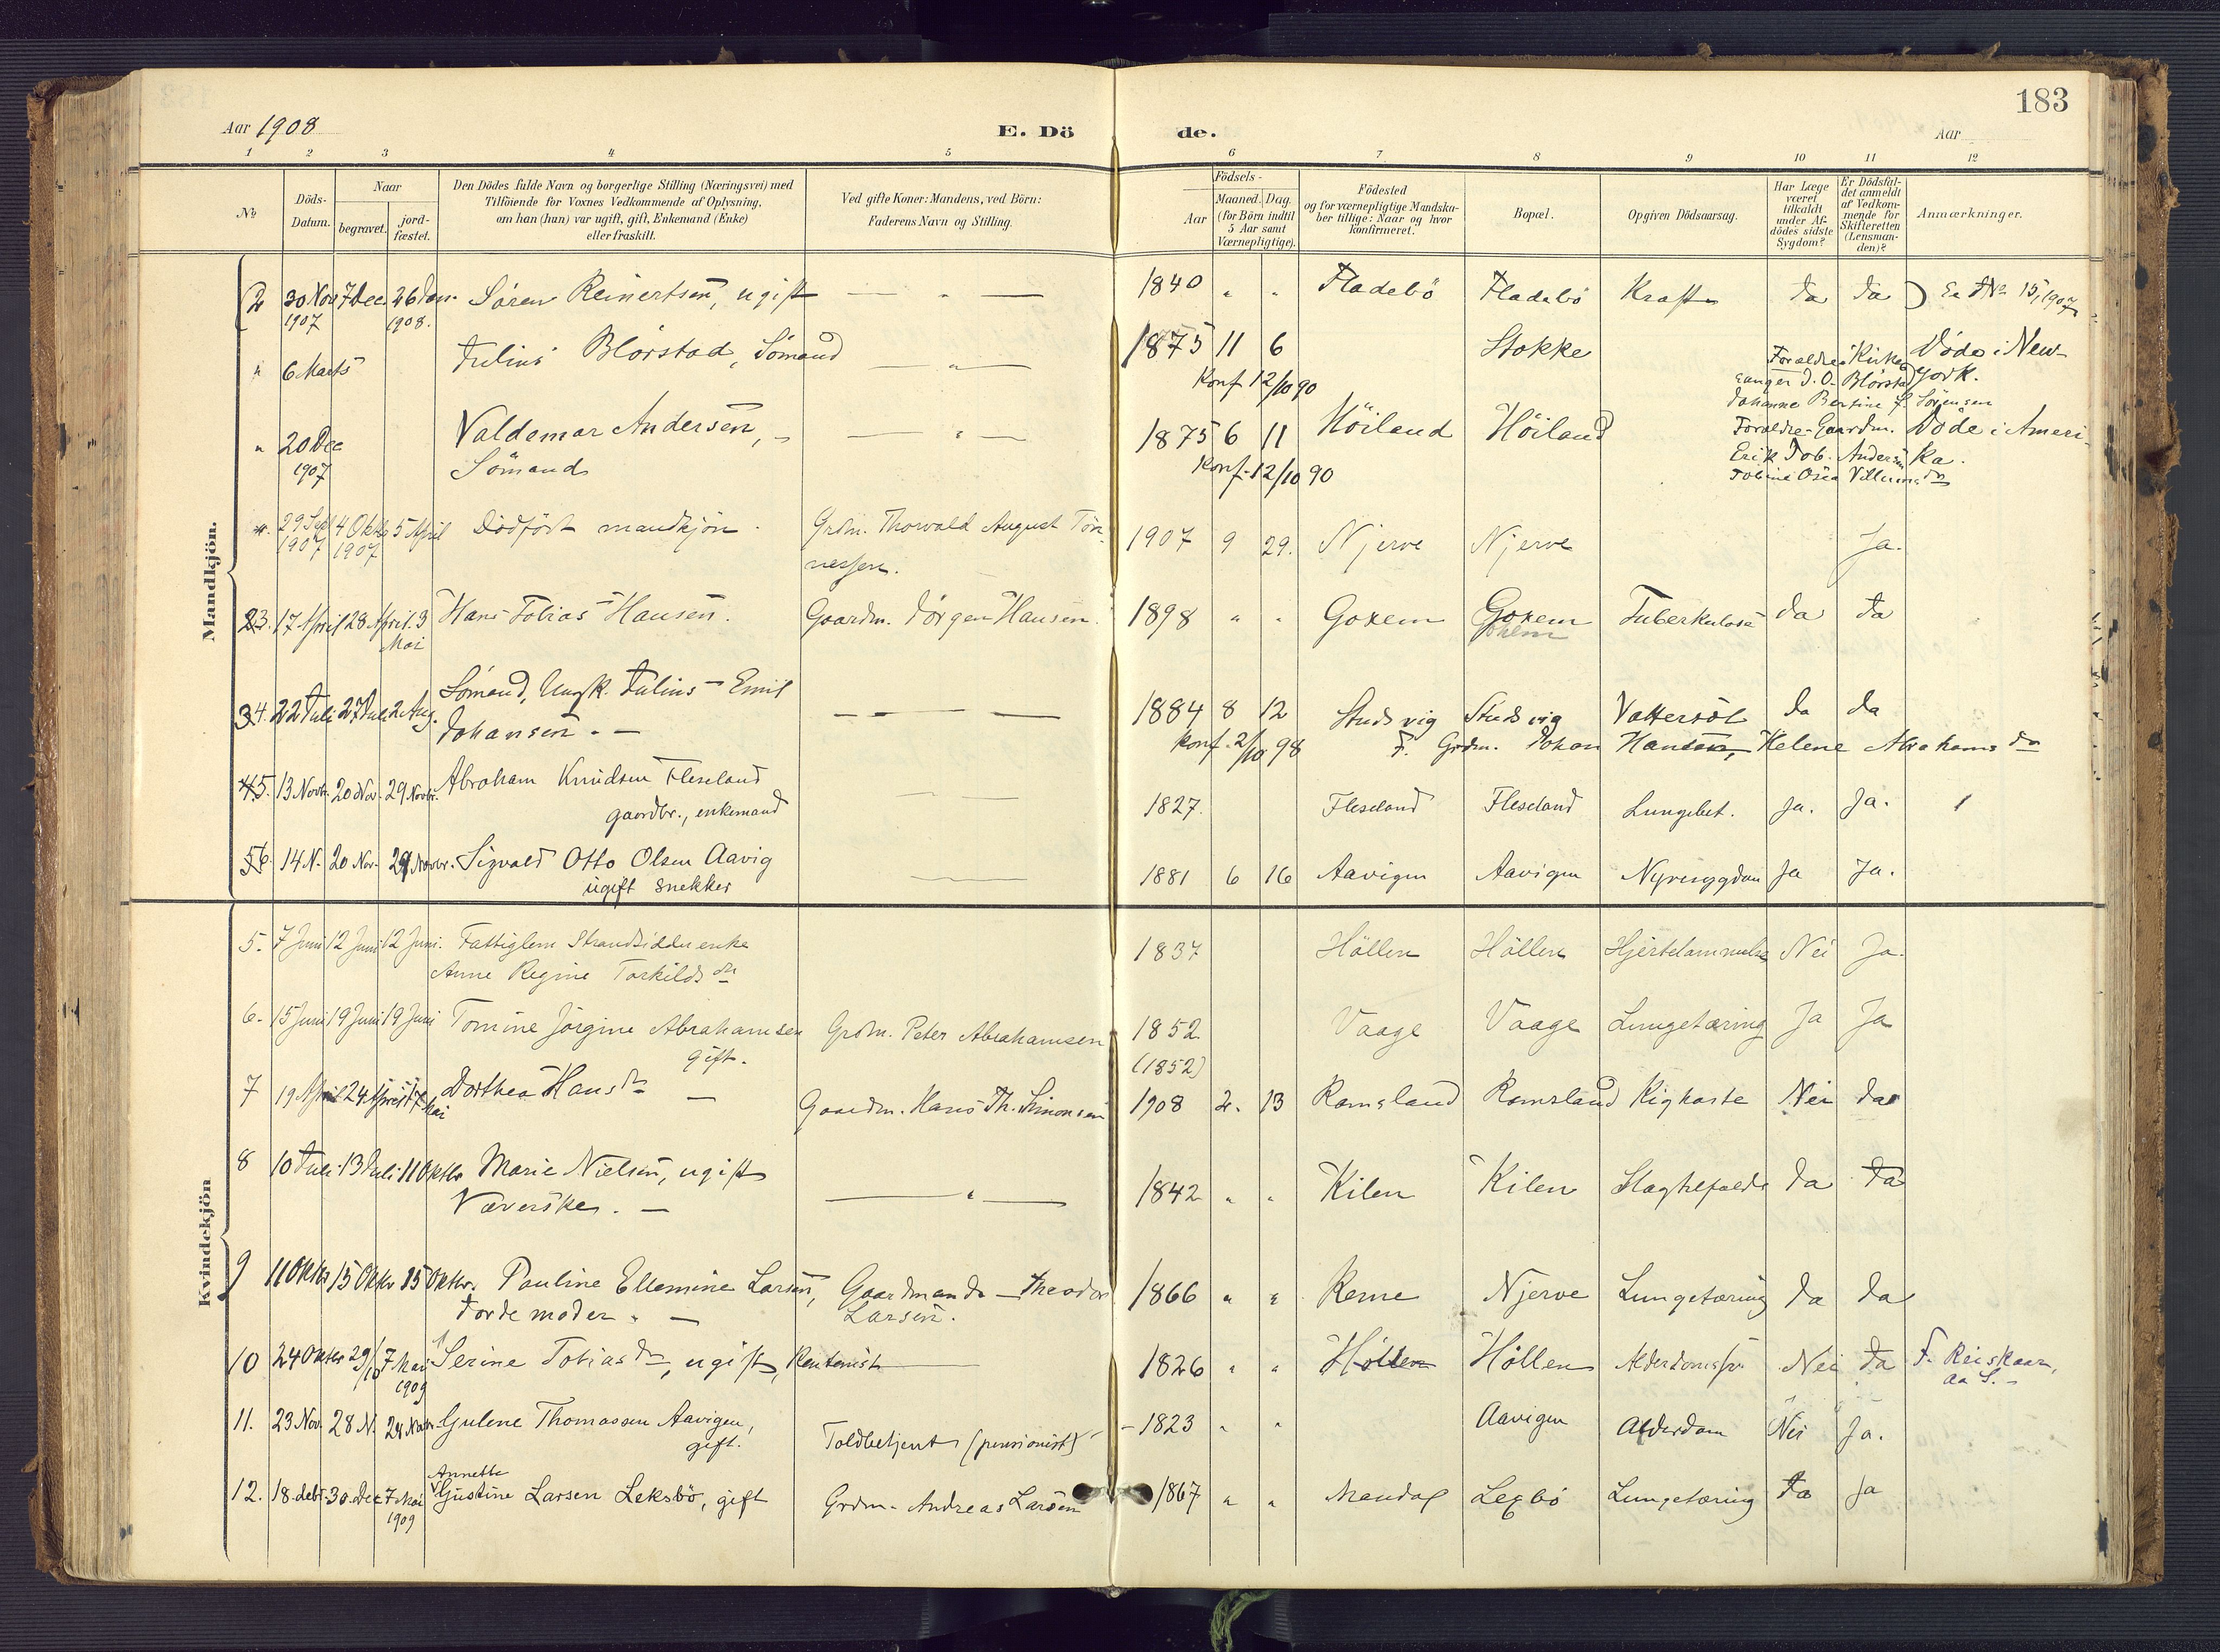 183
Aar 1908
E. Dö de.
Aar
1 2 3 4 5 6 7 8 9 10 11 12
No
Döds-
Datum.
Naar
begravet.
jord-
fæstet.
Den Dödes fulde Navn og borgerlige Stilling (Næringsvei) med
Tilföiende for Voxnes Vedkommende af Oplysning,
om han (hun) var ugift, gift, Enkemand (Enke)
eller fraskilt.
Ved gifte Koner: Mandens, ved Börn:
Faderens Navn og Stilling.
Födsels-
Aar
Maaned. Dag.
(for Börn indtil
5 Aar samt
Værnepligtige).
Födested
og for værnepligtige Mandska-
ber tillige: Naar og hvor
konfirmeret.
Bopæl.
Opgiven Dödsaarsag.
Har Læge
været
tilkaldt
under Af-
dödes sidste
Sygdom?
Er Dödsfal-
det anmeldt
af Vedkom-
mende for
Skifteretten
(Lensman-
den)?
Anmærkninger.
Mandkjön.
2 30 Nov 7 Dec 26 Jan. Sören Reinertsen, ugift — " — 1840 " " Fladebö Fladebö Kræft Ja Ja No 15, 1907
1907 1908.
" 6 Marts Julius Blörstad, Sömand — " — 1875 11 6 Stokke Döde i New-
York.
Konf. 12/10 90
Forældre: Kirke
sanger J. O. Blörstad
Johanne Bertine f. Sörensen
" 20 Dec Valdemar Andersen, — " — 1875 6 11 Höiland Höiland Döde i Ameri-
ka.
1907 Sömand Konf. 12/10 90
Forældre- Gaardm.
Erik Tob. Andersen
Tobine Osea Villumsdn
29 Sept 4 Oktb 5 April Dödfödt mandkjön. Grdm. Thorvald August Tön- 1907 9 29. Njerve Njerve Ja.
1907 1907 nessen.
23. 17 April 28 April. 3 Hans Tobias Hansen. Gaardm. Jörgen Hansen. 1898 " " Goxem Goxem Tuberkulose Ja Ja
Mai
34. 22 Juli 27 Juli 2 Aug. Sömand, Ungk. Julius Emil
Johansen. — — " — 1884 8 12 Studsvig Studsvig Vattersot Ja Ja
Konf. 2/10 98 F. Grdm. Johan Hansen, Helene Abrahamsdn
45. 13 Novbr. 20 Nov. 29 Novbr. Abraham Knudsen Fleseland
gaardbr., enkemand 1827. Fleseland Fleseland Lungebet. Ja. Ja.
56. 14 N. 20 Nov. 29 Novbr. Sigvald Otto Olsen Aavig
ugift snekker 1881 6 16 Aavigen Aavigen Nyresygdom Ja Ja.
Kvindekjön
5. 7 Juni 12 Juni 12 Juni. Fattiglem Strandsidderenke
Anne Regine Torkildsdn 1837 Höllen Höllen Hjertelammelse Nei Ja.
6. 15 Juni 19 Juni 19 Juni Tomine Jörgine Abrahamsen Grdm. Peter Abrahamsen 1852. Vaage Vaage Lungetæring Ja Ja
gift. (1852)
7 19 April 24 April 17 Mai Dorthea Hansdn — Gaardm. Hans Th. Simonsen 1908 2. 13 Ramsland Ramsland Kighoste Nei Ja
8 10 Juli 13 Juli 11 Oktbr Marie Nielsen, ugift
Væverske. — — " — 1842 " " Kilen Kilen Slagtilfælde Ja Ja
9 11 Oktbr 15 Oktbr 15 Oktbr. Pauline Ellemine Larsen, Gaardmand — Theodor 1866 " " Kerne Njerve Lungetæring Ja Ja
Jordemoder. — Larsen.
10 24 Oktbr 29/10 7 Mai Serine Tobiasdn, ugift, Rentenist — 1826 " " Höllen Höllen Alderdomssv. Nei Ja F. Reiskaar,
1909 Aa S.
11. 23 Nov. 28 N. 29 Novbr. Gulene Thomassen Aavigen,
gift. Toldbetjent (pensionist) 1823 " " Aavigen Alderdom Nei Ja.
Annette
12. 18. debr. 30. Dec 7 Mai Gustine Larsen Leksbö, gift Grdm. Andreas Larsen 1867 " " Mandal Lexbö Lungetæring Ja Ja
1909